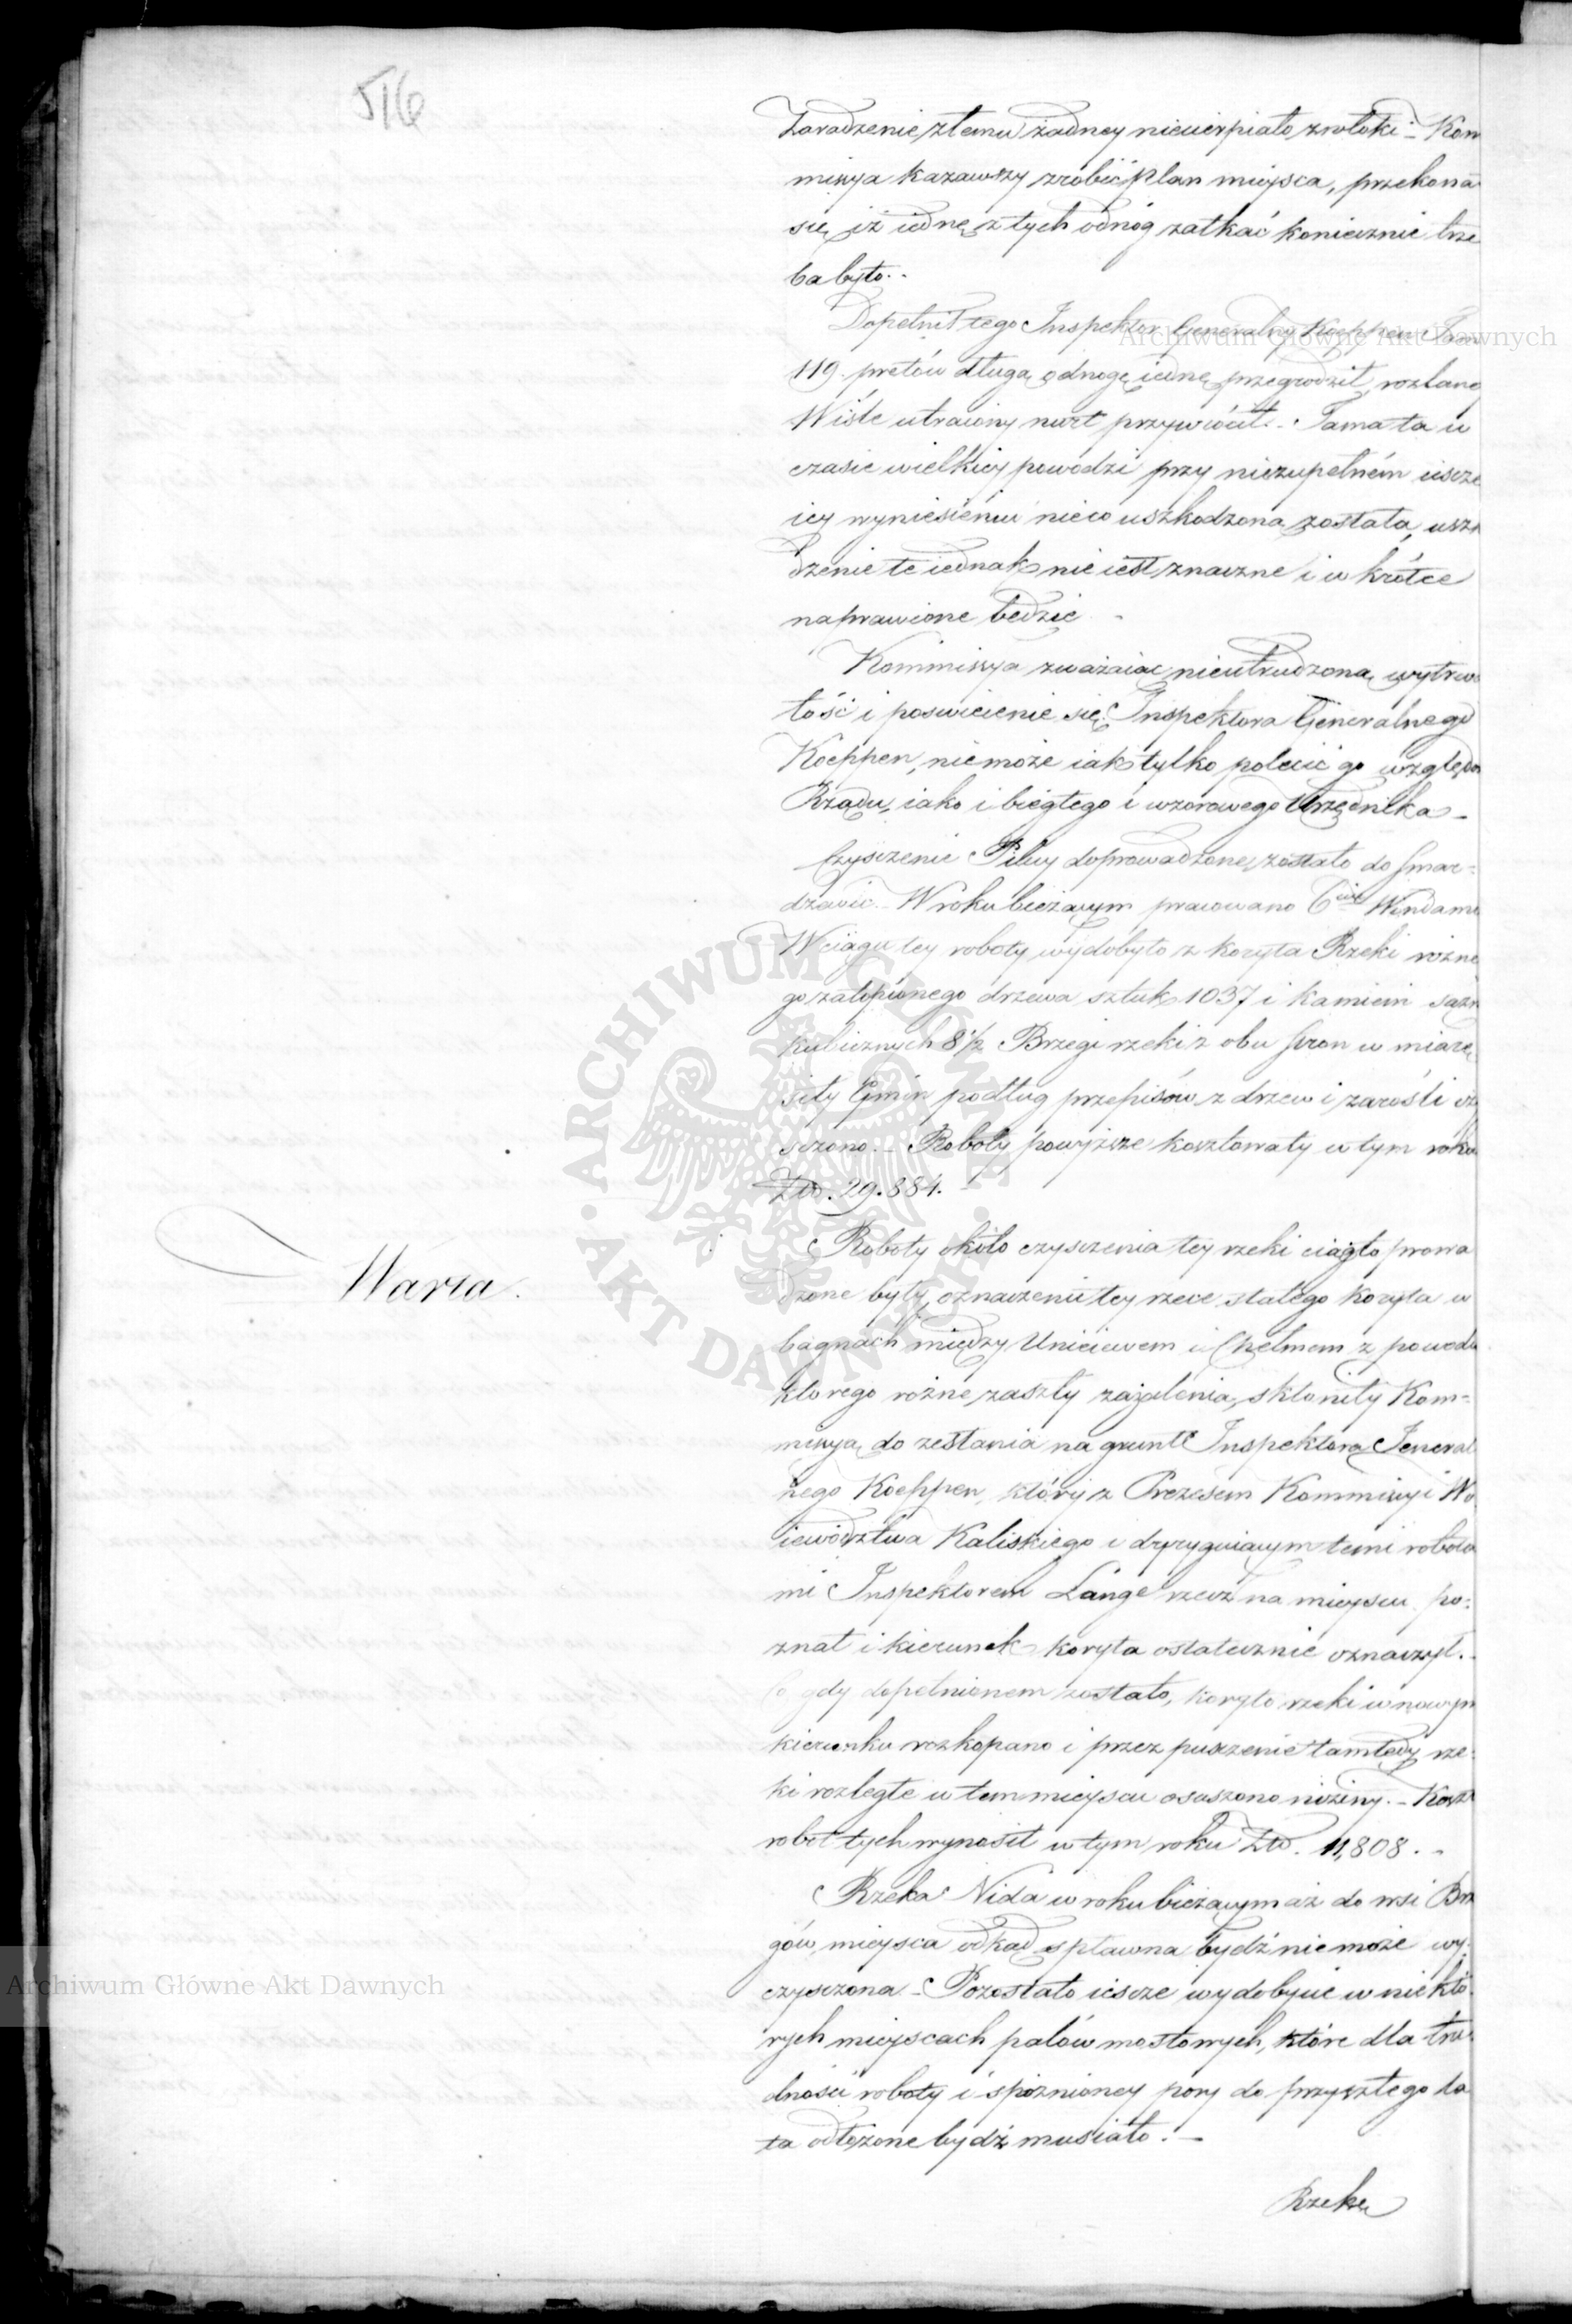 516
Zaradzenie złemu żadney niecierpiało zwłoki – Kom
missya kazawszy zrobić plan mieysca, przekona
się iż iednę z tych odnóg zatkać koniecznie trze
ba było. –
Dopełnił tego Inspektor Generalny Koeppen Tam
119. prętów długą odnogę iednę przegrodził, rozlaney
Wiśle utracony nurt przywrócił. – Tama ta w
czasie wielkiey powodzi przy niezupełném iescze
iey wyniesieniu nieco uszkodzona została, uszko
dzenie te iednak nie iest znaczne i w krótce
naprawione będzie –
Kommissya zważaiąc nieutrudzoną wytrwa
łość i poswięcenie się Inspektora Generalnego
Koeppen, nie może iak tylko polecić go względo
Rządu, iako i biegłego i wzorowego Urzędnika –
Czysczenie Pilicy doprowadzone zostało do Smar-
dzewic. – W roku bieżącym pracowano 6cią Windami
W ciągu tey roboty wydobyto z koryta Rzeki rózne
go zatopionego drzewa sztuk 1037 i kamieni sążn
kubicznych 8½ Brzegi rzeki z obu stron w miarę
siły Gmin podług przepisów z drzew i zarośli oczy
sczono. – Roboty powyższe kosztowały w tym roku
Złp. 29.884. –
Warta.
Roboty około czysczenia tey rzeki ciągło prowa
dzone były, oznaczenie tey rzece stałego koryta w
bagnach między Unieiewem i Chełmem z powodu
ktorego rożne zaszły zażalenia, skłoniły Kom-
missyą do zesłania na grunt Inspektora Jeneral
nego Koeppen, który z Prezesem Kommissyi Wo
iewództwa Kaliskiego i dyryguiącym temi robota
mi Inspektorem Lange rzecz na mieyscu po-
znał i kierunek koryta ostatecznie oznaczył. –
Co gdy dopełnionem zostało, koryto rzeki w nowym
kierunku rozkopano i przez puszczenie tamtędy rze-
ki rozległe w tem mieyscu osuszono niziny. – Koszt
robot tych wynosił w tym roku Złp. 11,808. –
Rzeka Nida w roku bieżącym aż do wsi Brze
gów, mieysca odkąd spławna bydź nie może wy-
czysczona – Pozostało iescze wydobycie w niektó-
rych mieyscach palów mostowych, które dla tru-
dności roboty i spóznioney pory do przyszłego la
ta odłożone bydź musiało. –
Rzekę
Archiwum Główne Akt Dawnych
Archiwum Główne Akt Dawnych
ARCHIWUM GŁÓWNE · AKT DAWNYCH ·